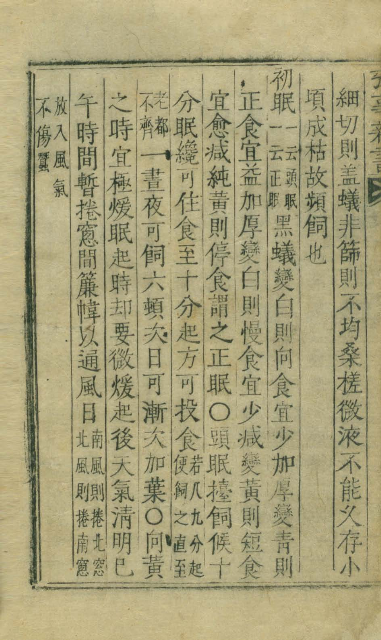 細切則盖蟻非篩則不均桑槎微液不能久存小
頃成枯故頻飼也
初眠一云頭眠一云正眠黑蟻變白則向食宜少加厚變青則
正食宜益加厚變白則慢食宜少减變黃則短食
宜愈减純黃則停食謂之正眠〇頭眠擡飼候十
分眠纔可住食至十分起方可投食若八九分起便飼之直至
老都不齊一晝夜可飼六頓次日可漸次加葉〇向黃
之時宜極煖眠起時却要微煖起後天氣淸明巳
午時間暫捲窓間簾幃以通風日南風則捲北窓北風則捲南窓
放入風氣不傷蠶